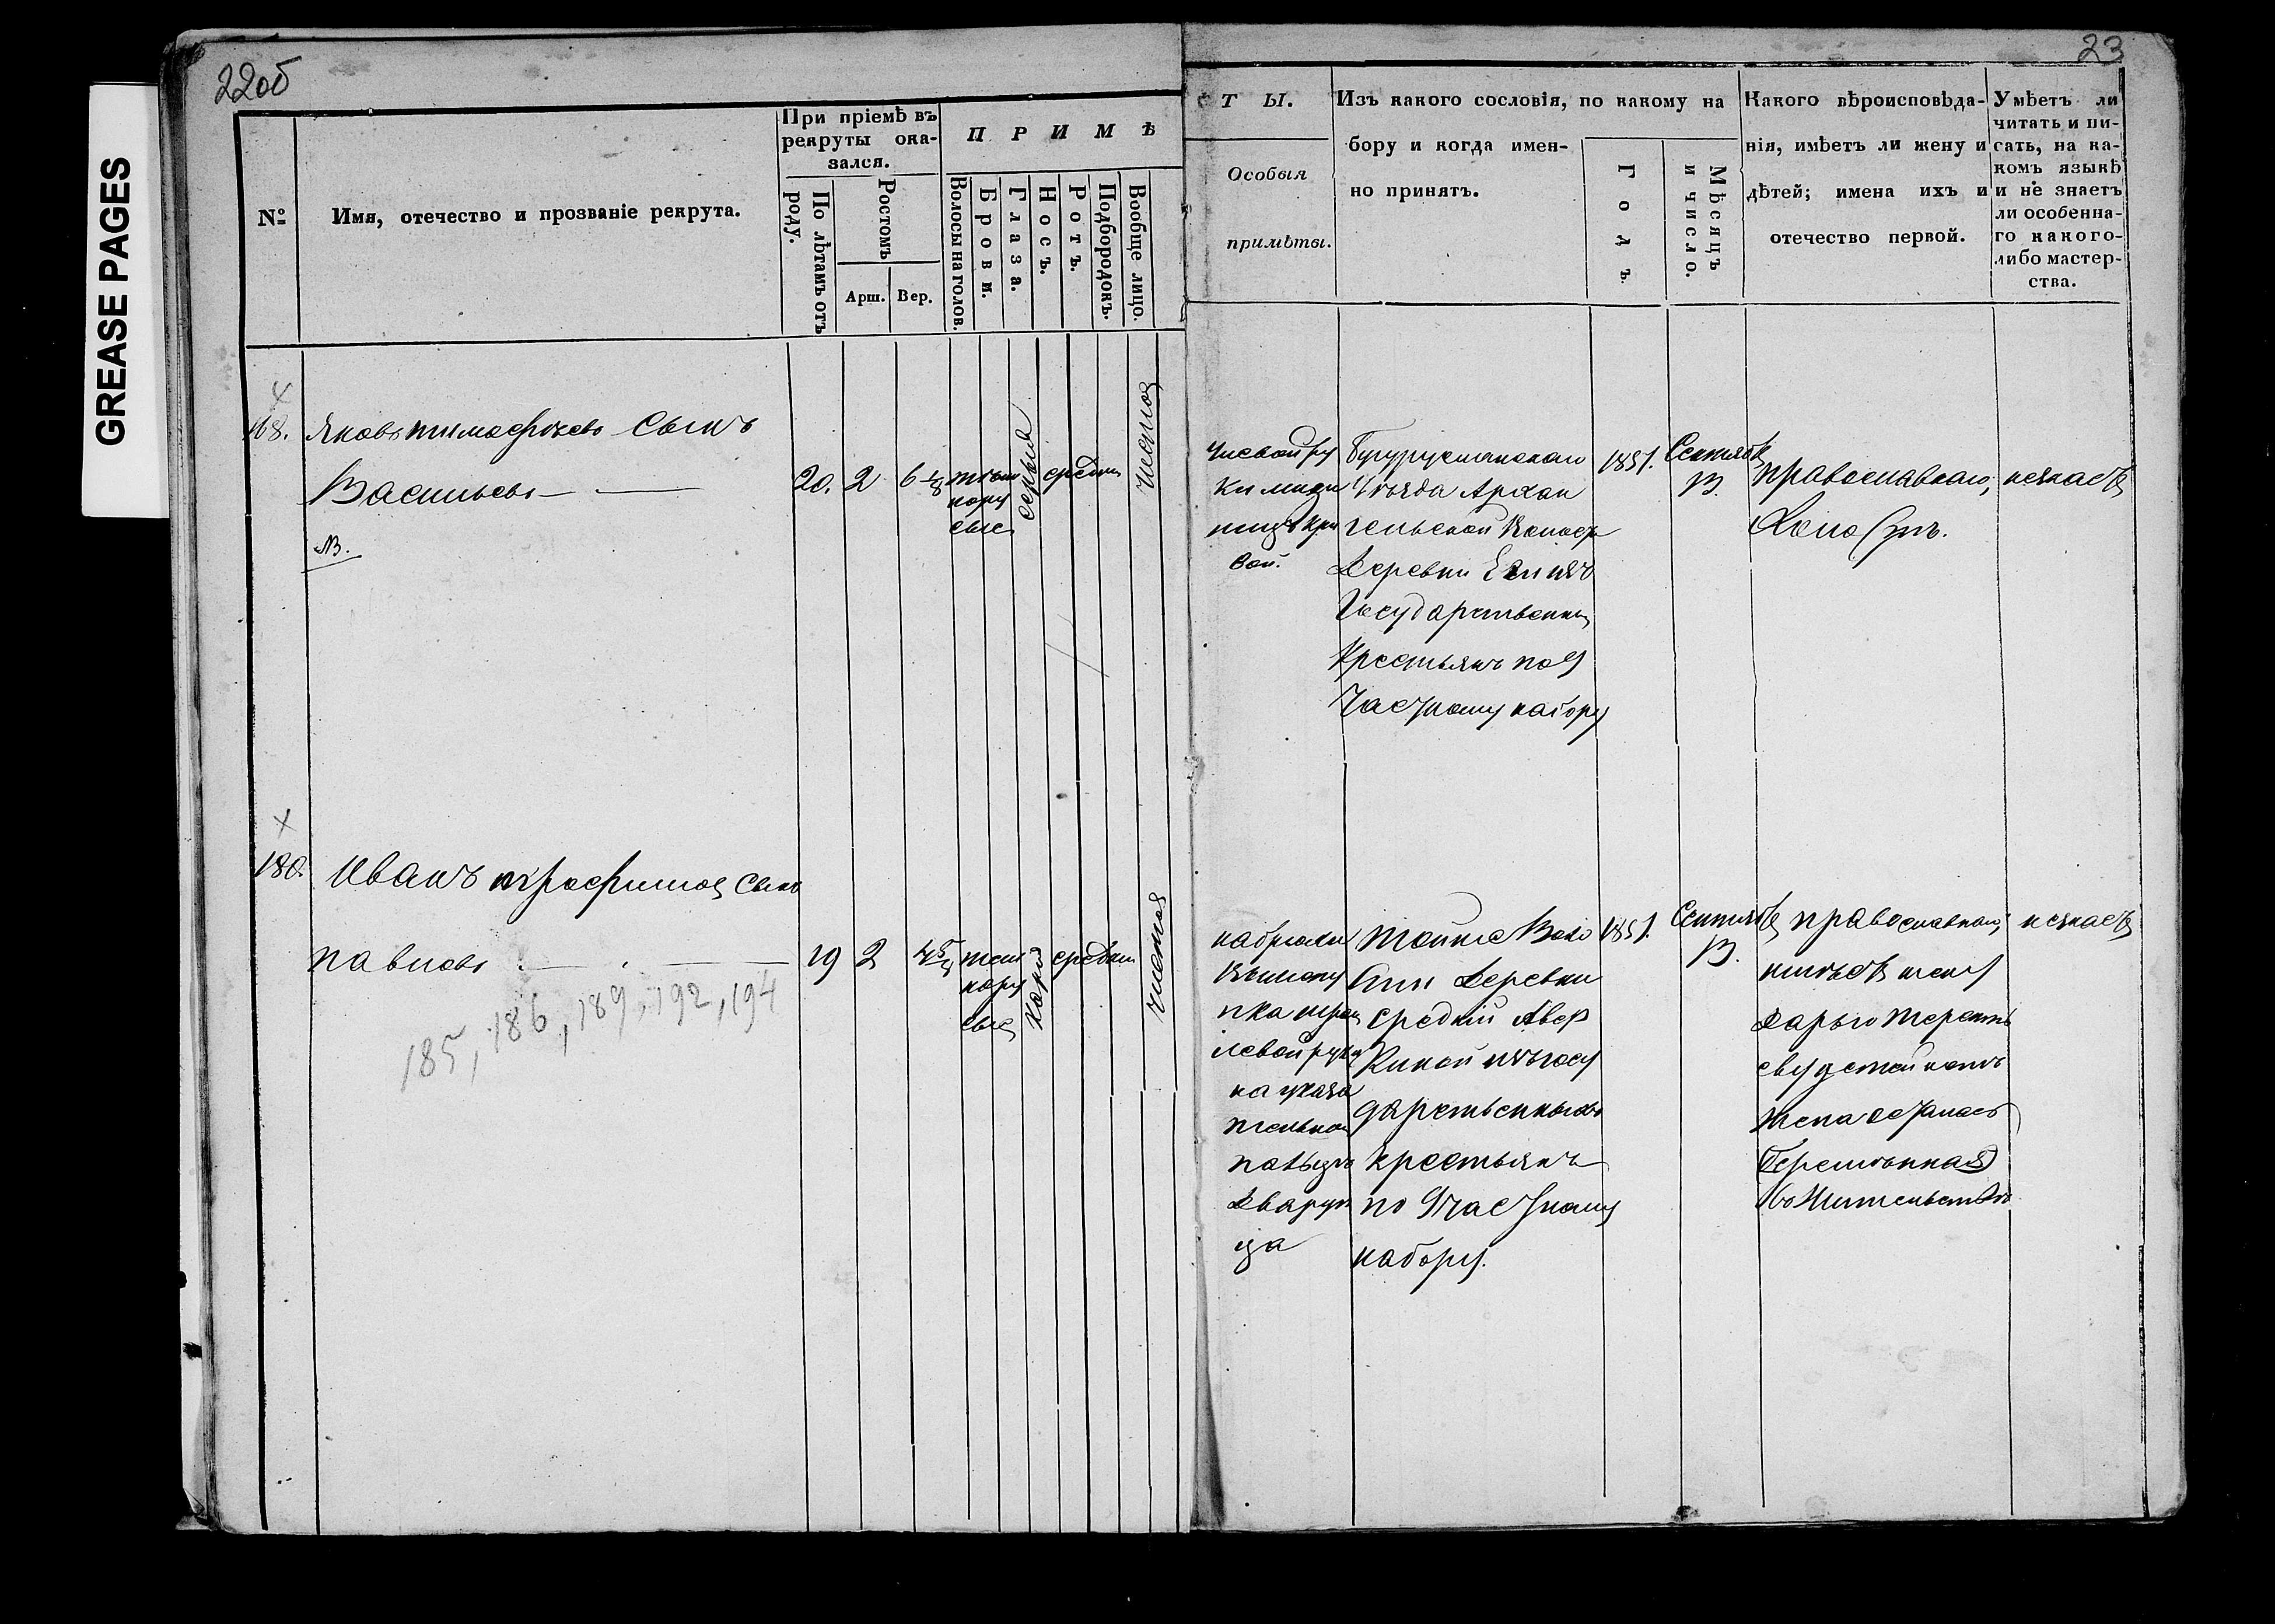 GREASE PAGES
22об
23
№
Имя, отечество и прозваніе рекрута.
При пріемѣ въ
рекруты ока-
зался.
По лѣтамъ отъ
роду.
Ростомъ
Арш.
Вер.
П Р И М Ѣ
Волосы на голов.
Брови.
Глаза.
Носъ.
Ротъ.
Подбородокъ.
Вообще лицо.
Т Ы.
Особыя
примѣты.
Изъ какого сословія, по какому на
бору и когда имен-
но принятъ.
Годъ.
Мѣсяцъ
и число.
Какого вѣроисповѣда-
нія, имѣетъ ли жену и
дѣтей; имена ихъ и
отечество первой.
Умѣетъ ли
читать и пи-
сать, на ка-
комъ языкѣ
и не знаетъ
ли особенна-
го какого-
либо мастер-
ства.
Яковъ тимофѣевъ Сынъ
Васильевъ
20. 2 6
русые
серыя
средни
чистое
NB.
Левой ру
ки мизи
Бугурусланскаго
Уѣзда Архан
гельской Волости
Деревни
Государственны
Крестьянъ по 9
Частному набору
1851. Сентяб
13.
православнаго,
Холостъ.
незнаетъ
180.
Иванъ трофимов Сынъ
павловъ
19 2
русые
Карія
средни
чистое
185, 186, 189, 192, 194
левой руки
на указа
тельном
Тойже Воло
сти Деревни
Средній Авер
киной изъ госу
дарственныхъ
крестьянъ
по 9 частному
набору.
1851. Сентяб
13.
православнаго,
имѣетъ жену
Дарью Терентье
еву детей нетъ
жена осталась
беременная
въ жительствѣ
незнаетъ